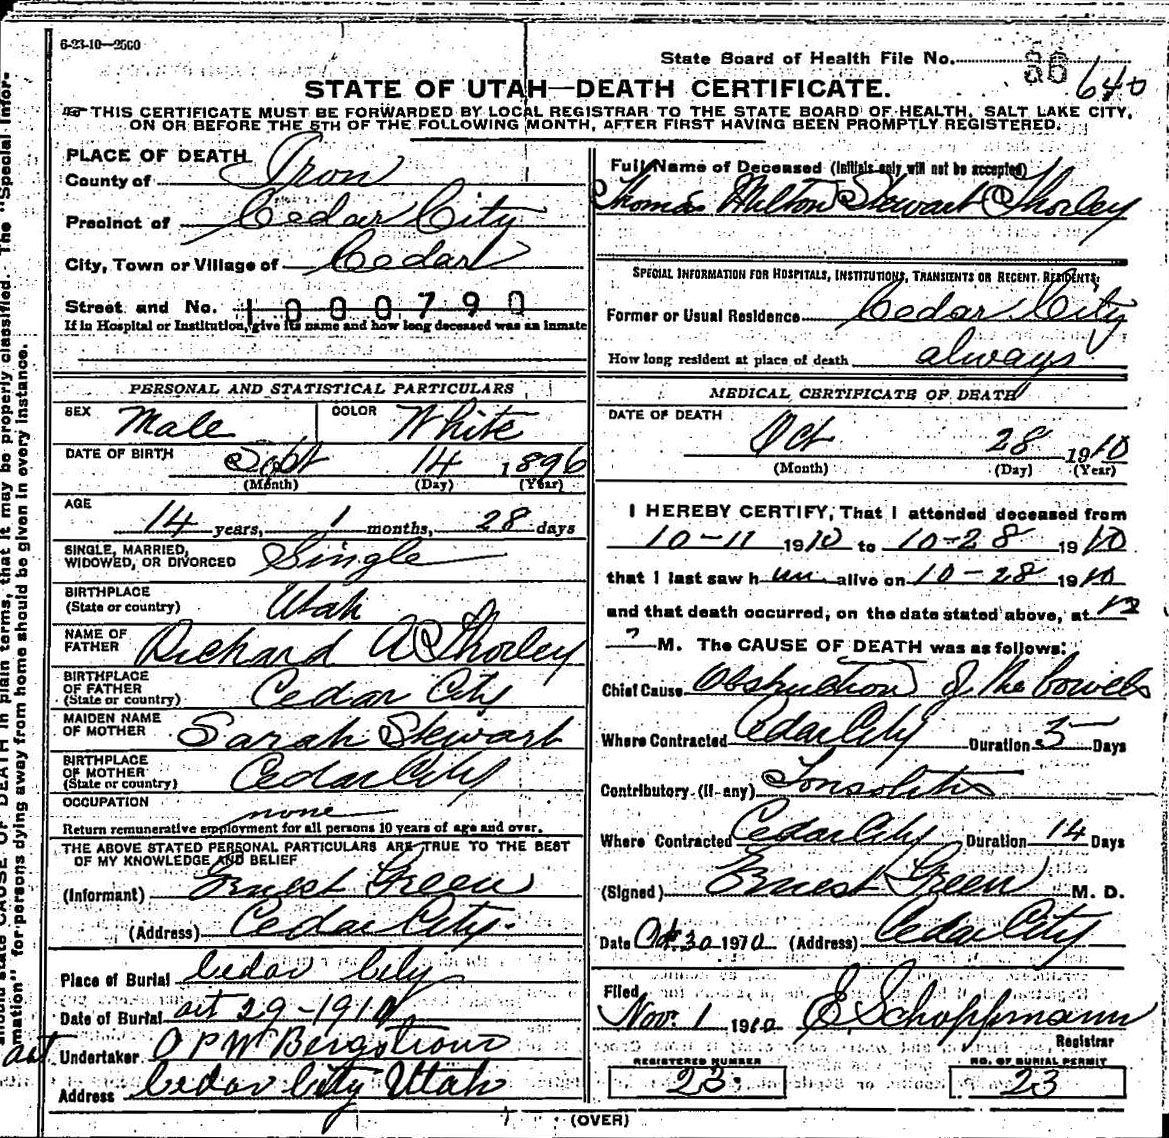 6-23-10—2500
State Board of Health File No. 86 640
STATE OF UTAH—DEATH CERTIFICATE.
THIS CERTIFICATE MUST BE FORWARDED BY LOCAL REGISTRAR TO THE STATE BOARD OF HEALTH, SALT LAKE CITY,
ON OR BEFORE THE 5TH OF THE FOLLOWING MONTH, AFTER FIRST HAVING BEEN PROMPTLY REGISTERED.
PLACE OF DEATH
County of Iron
Precinct of Cedar City
City, Town or Village of Cedar
Street and No. 1000790
If in Hospital or Institution, give its name and how long deceased was an inmate
PERSONAL AND STATISTICAL PARTICULARS
SEX Male COLOR White
DATE OF BIRTH Sept 14 1896
(Month) (Day) (Year)
AGE
14 years, 1 months, 28 days
SINGLE, MARRIED,
WIDOWED, OR DIVORCED Single
BIRTHPLACE
(State or country) Utah
NAME OF
FATHER Richard A Thorley
BIRTHPLACE
OF FATHER
(State or country) Cedar City
MAIDEN NAME
OF MOTHER Sarah Stewart
BIRTHPLACE
OF MOTHER
(State or country) Cedar City
OCCUPATION none
Return remunerative employment for all persons 10 years of age and over.
THE ABOVE STATED PERSONAL PARTICULARS ARE TRUE TO THE BEST
OF MY KNOWLEDGE AND BELIEF
(Informant) Ernest Green
(Address) Cedar City.
Place of Burial Cedar City
Date of Burial Oct 29-1910
Undertaker O P W Bergstrom
Address Cedar City Utah
Full Name of Deceased (Initials only will not be accepted)
Thomas Milton Stewart Thorley
SPECIAL INFORMATION FOR HOSPITALS, INSTITUTIONS, TRANSIENTS OR RECENT RESIDENTS:
Former or Usual Residence Cedar City
How long resident at place of death always
MEDICAL CERTIFICATE OF DEATH
DATE OF DEATH
Oct 28 1910
(Month) (Day) (Year)
I HEREBY CERTIFY, That I attended deceased from
10-11 1910 to 10-28 1910
that I last saw h im alive on 10-28 1910
and that death occurred, on the date stated above, at 12
M. The CAUSE OF DEATH was as follows:
Chief Cause Obstruction of the bowels
Where Contracted Cedar City Duration 3 Days
Contributory (if any) Tonsolitis
Where Contracted Cedar City Duration 14 Days
(Signed) Ernest Green M. D.
Date Oct 30 1910 (Address) Cedar City
Filed
Nov. 1 1910 E Schoppmann
Registrar
REGISTERED NUMBER
23
NO. OF BURIAL PERMIT
23
(OVER)
should state CAUSE OF DEATH in plain terms, that it may be properly classified. The "Special Infor-
mation" for persons dying away from home should be given in every instance.